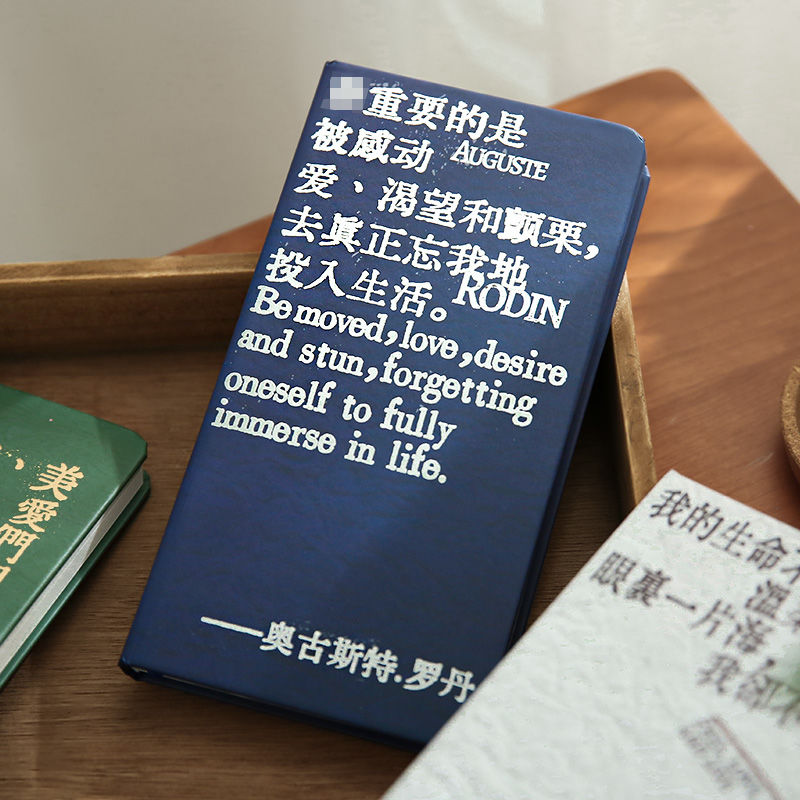 重要的是
被感动 AUGUSTE
爱、渴望和颤栗，
去真正忘我地
投入生活。RODIN
Be moved,love,desire
and stun,forgetting
oneself to fully
immerse in life.
——奥古斯特.罗丹
美愛們
我的生命
溫
眼裏一片海
我